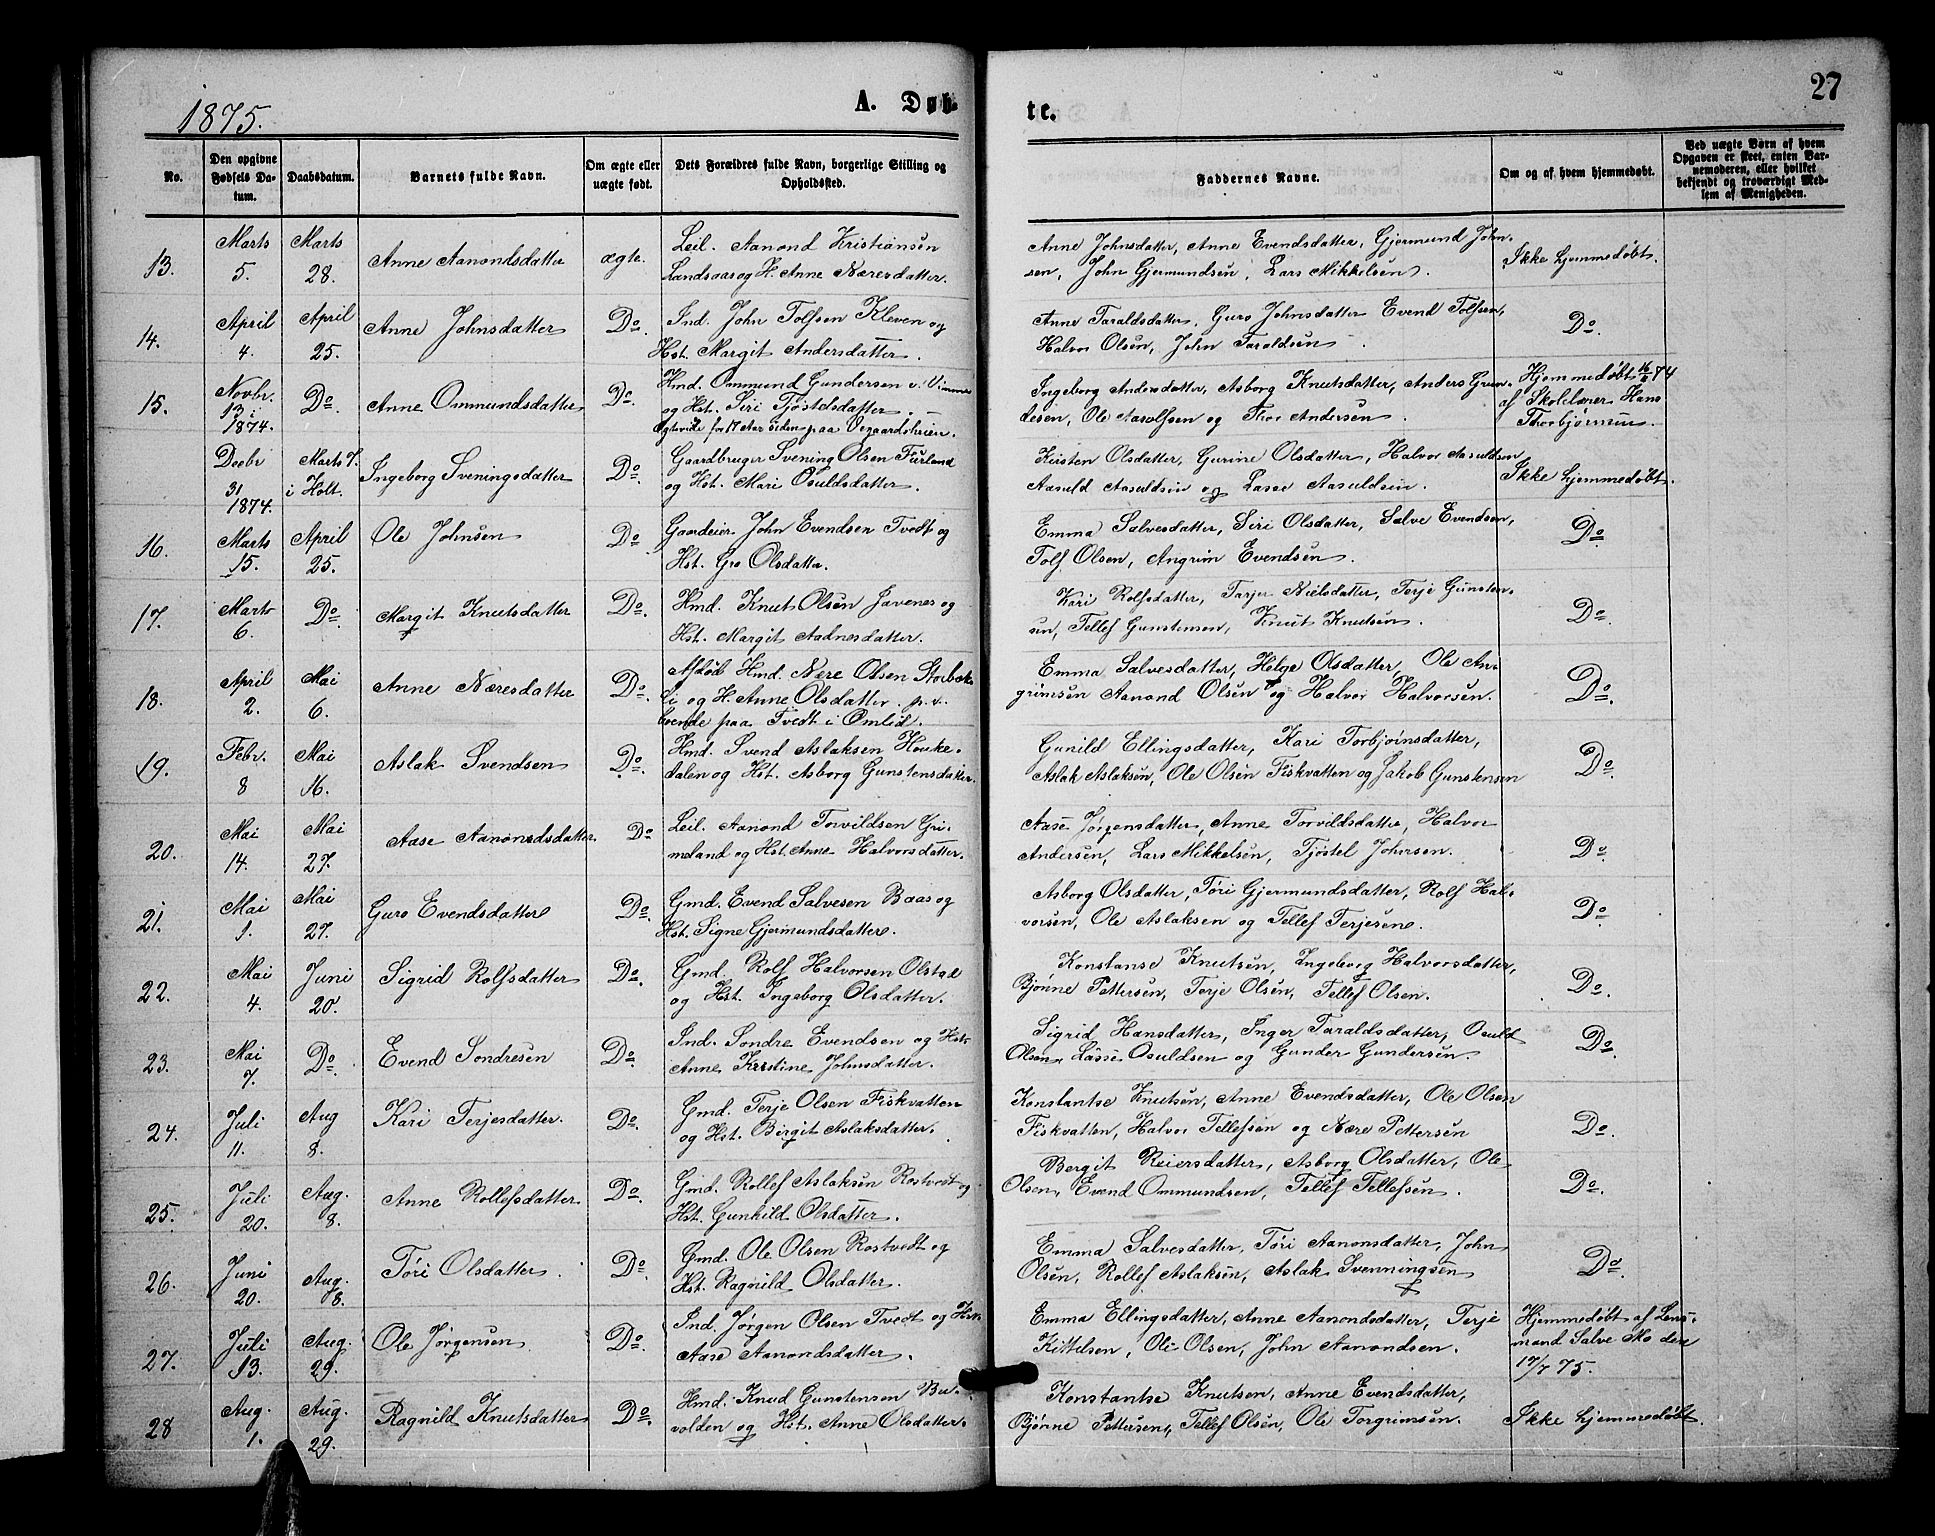 1875.
A. Døb-
te.
27
No.
Den opgivne Fødsels Datum.
Daabsdatum.
Barnets fulde Navn.
Om ægte eller uægte født.
Dets Forældres fulde Navn, borgerlige Stilling og Opholdssted.
Faddernes Navne.
Om og af hvem hjemmedøbt.
Ved uægte Børn af hvem Opgaven er skeet, enten Barnemoderen, eller hvilket bekjendt og troværdigt Medlem af Menigheden.
13. Marts 5. Marts 28. Anne Aanondsdatter ægte. Leil. Aanond Kristiansen
Lundsaas og H. Anne Næresdatter.
Anne Johnsdatter, Anne Evendsdatter, Gjermund John-
sen, John Gjermundsen, Lars Mikkelsen. Ikke hjemmedøbt.
14. April 4. April 25. Anne Johnsdatter Do. Ind. John Tolfsen Kleven og
Hst. Margit Andersdatter.
Anne Taraldsdatter, Guro Johnsdatter Evend Tolfsen,
Halvor Olsen, John Taraldsen. Do.
15. Novbr. 13 i 1874. Do. Anne Ommundsdatter Do. Hmd. Ommund Gundersen v. Vimme
og Hst. Siri Tjøstdsdatter.
Ægteviede for 17 Aar siden paa Vegaardsheien.
Ingeborg Andersdatter, Asborg Knutsdatter, Anders Gun-
desen, Ole Aasolfsen og Thor Andersen.
Hjemmedøbt 74
af Skolelærer Hans
Thorbjørnsen.
Decbr 31 1874. Marts 7. i Holt. Ingeborg Sveningsdatter Do. Gaardbruger Svening Olsen Furland
og Hst. Mari Osuldsdatter.
Kirsten Olsdatter, Gurine Olsdatter, Halvor Aasuldsen
Aasuld Aasuldsen og Lasse Aasuldsen. Ikke hjemmedøbt.
16. Marts 15. April 25. Ole Johnsen Do. Gaardeier John Evendsen Tvedt og
Hst. Gro Olsdatter.
Emma Salvesdatter, Siri Olsdatter, Salve Evendsen,
Tolf Olsen, Angrim Evendsen. Do.
17. Marts 6. Do. Margit Knutsdatter Do. Hmd. Knut Olsen Javenes og
Hst. Margit Aadnesdatter.
Kari Rolfsdatter, Tarjer Nielsdatter, Terje Gunsten-
sen, Tellef Gunstensen, Knut Knutsen. Do.
18. April 2. Mai 6. Anne Næresdatter Do. Afdød Hmd. Nære Olsen Storbæk
li og H. Anne Olsdatter p.t.
boende paa Tvedt i Omlid.
Emma Salvesdatter, Helge Olsdatter, Ole An-
grimsen Aanond Olsen og Halvor Halvorsen. Do.
19. Febr. 8 Mai 16. Aslak Svendsen Do. Hmd. Svend Aslaksen Houke-
dalen og Hst. Asborg Gunstensdatter.
Gunild Ellingsdatter, Kari Torbjørnsdatter,
Aslak Aslaksen, Ole Olsen Fiskvatten og Jakob Gunstensen Do.
20. Mai 14. Mai 27. Aase Aanondsdatter. Do Leil. Aanond Torvildsen Gri-
meland og Hst. Anne Halvorsdatter.
Aase Jørgensdatter, Anne Torvildsdatter, Halvor
Andersen, Lars Mikkelsen, Tjøstel Johnsen. Do.
21. Mai 1. Mai 27. Guro Evendsdatter Do. Gmd. Evend Salvesen Baas og
Hst. Signe Gjermundsdatter.
Asborg Olsdatter, Tøri Gjermundsdatter, Rolf Hal-
vorsen, Ole Aslaksen og Tellef Terjesene. Do.
22. Mai 4. Juni 20. Sigrid Rolfsdatter Do. Gmd. Rolf Halvorsen Olstad
og Hst. Ingeborg Olsdatter.
Konstanse Knutsen, Ingeborg Halvorsdatter,
Bjønne Pettersen, Terje Olsen, Tellef Olsen. Do.
23. Mai 7. Do. Evend Sondresen Do. Ind. Sondre Evendsen og Hst.
Anne Kirstine Johnsdatter.
Sigrid Hansdatter, Inger Taraldsdatter, Osuld
Olsen, Lasse Osuldsen og Gunder Gundersen. Do.
24. Juli 11. Aug 8. Kari Terjesdatter. Do. Gmd. Terje Olsen Fiskvatten
og Hst. Birgit Aslaksdatter.
Konstantse Knutsen, Anne Evendsdatter, Ole Olsen
Fiskvatten, Halvor Tellefsen og Nære Pettersen Do.
25. Juli 20. Aug. 8. Anne Rollefsdatter Do. Gmd. Rollef Aslaksen Rostvedt og
Hst. Gunhild Olsdatter.
Bergit Reiersdatter, Asborg Olsdatter, Ole
Olsen, Evend Ommundsen, Tellef Tellefsen. Do.
26. Juni 20. Aug. 8. Tøri Olsdatter. Do. Gmd. Ole Olsen Rostvedt og
Hst. Ragnild Olsdatter.
Emma Salvesdatter, Tøri Aanonsdatter, John
Olsen, Rollef Aslaksen, Aslak Svenningsen Do.
27. Juli 13. Aug. 29. Ole Jørgensen Do. Ind. Jørgen Olsen Tvedt og Hst.
Aase Aanondsdatter.
Emma Ellingsdatter, Anne Aanondsdatter, Terje
Kittelsen, Ole Olsen, John Aanondsen.
Hjemmedøbt af Lens-
mand Salve Mo den
17/7 75.
28 Aug. 1. Aug. 29. Ragnild Knutsdatter Do. Hmd. Knud Gunstensen Bu-
volden og Hst. Anne Olsdatter.
Konstantse Knutsen, Anne Evendsdatter,
Bjønne Pettersen, Tellef Olsen, Ole Torgrimsen. Ikke hjemmedøbt.